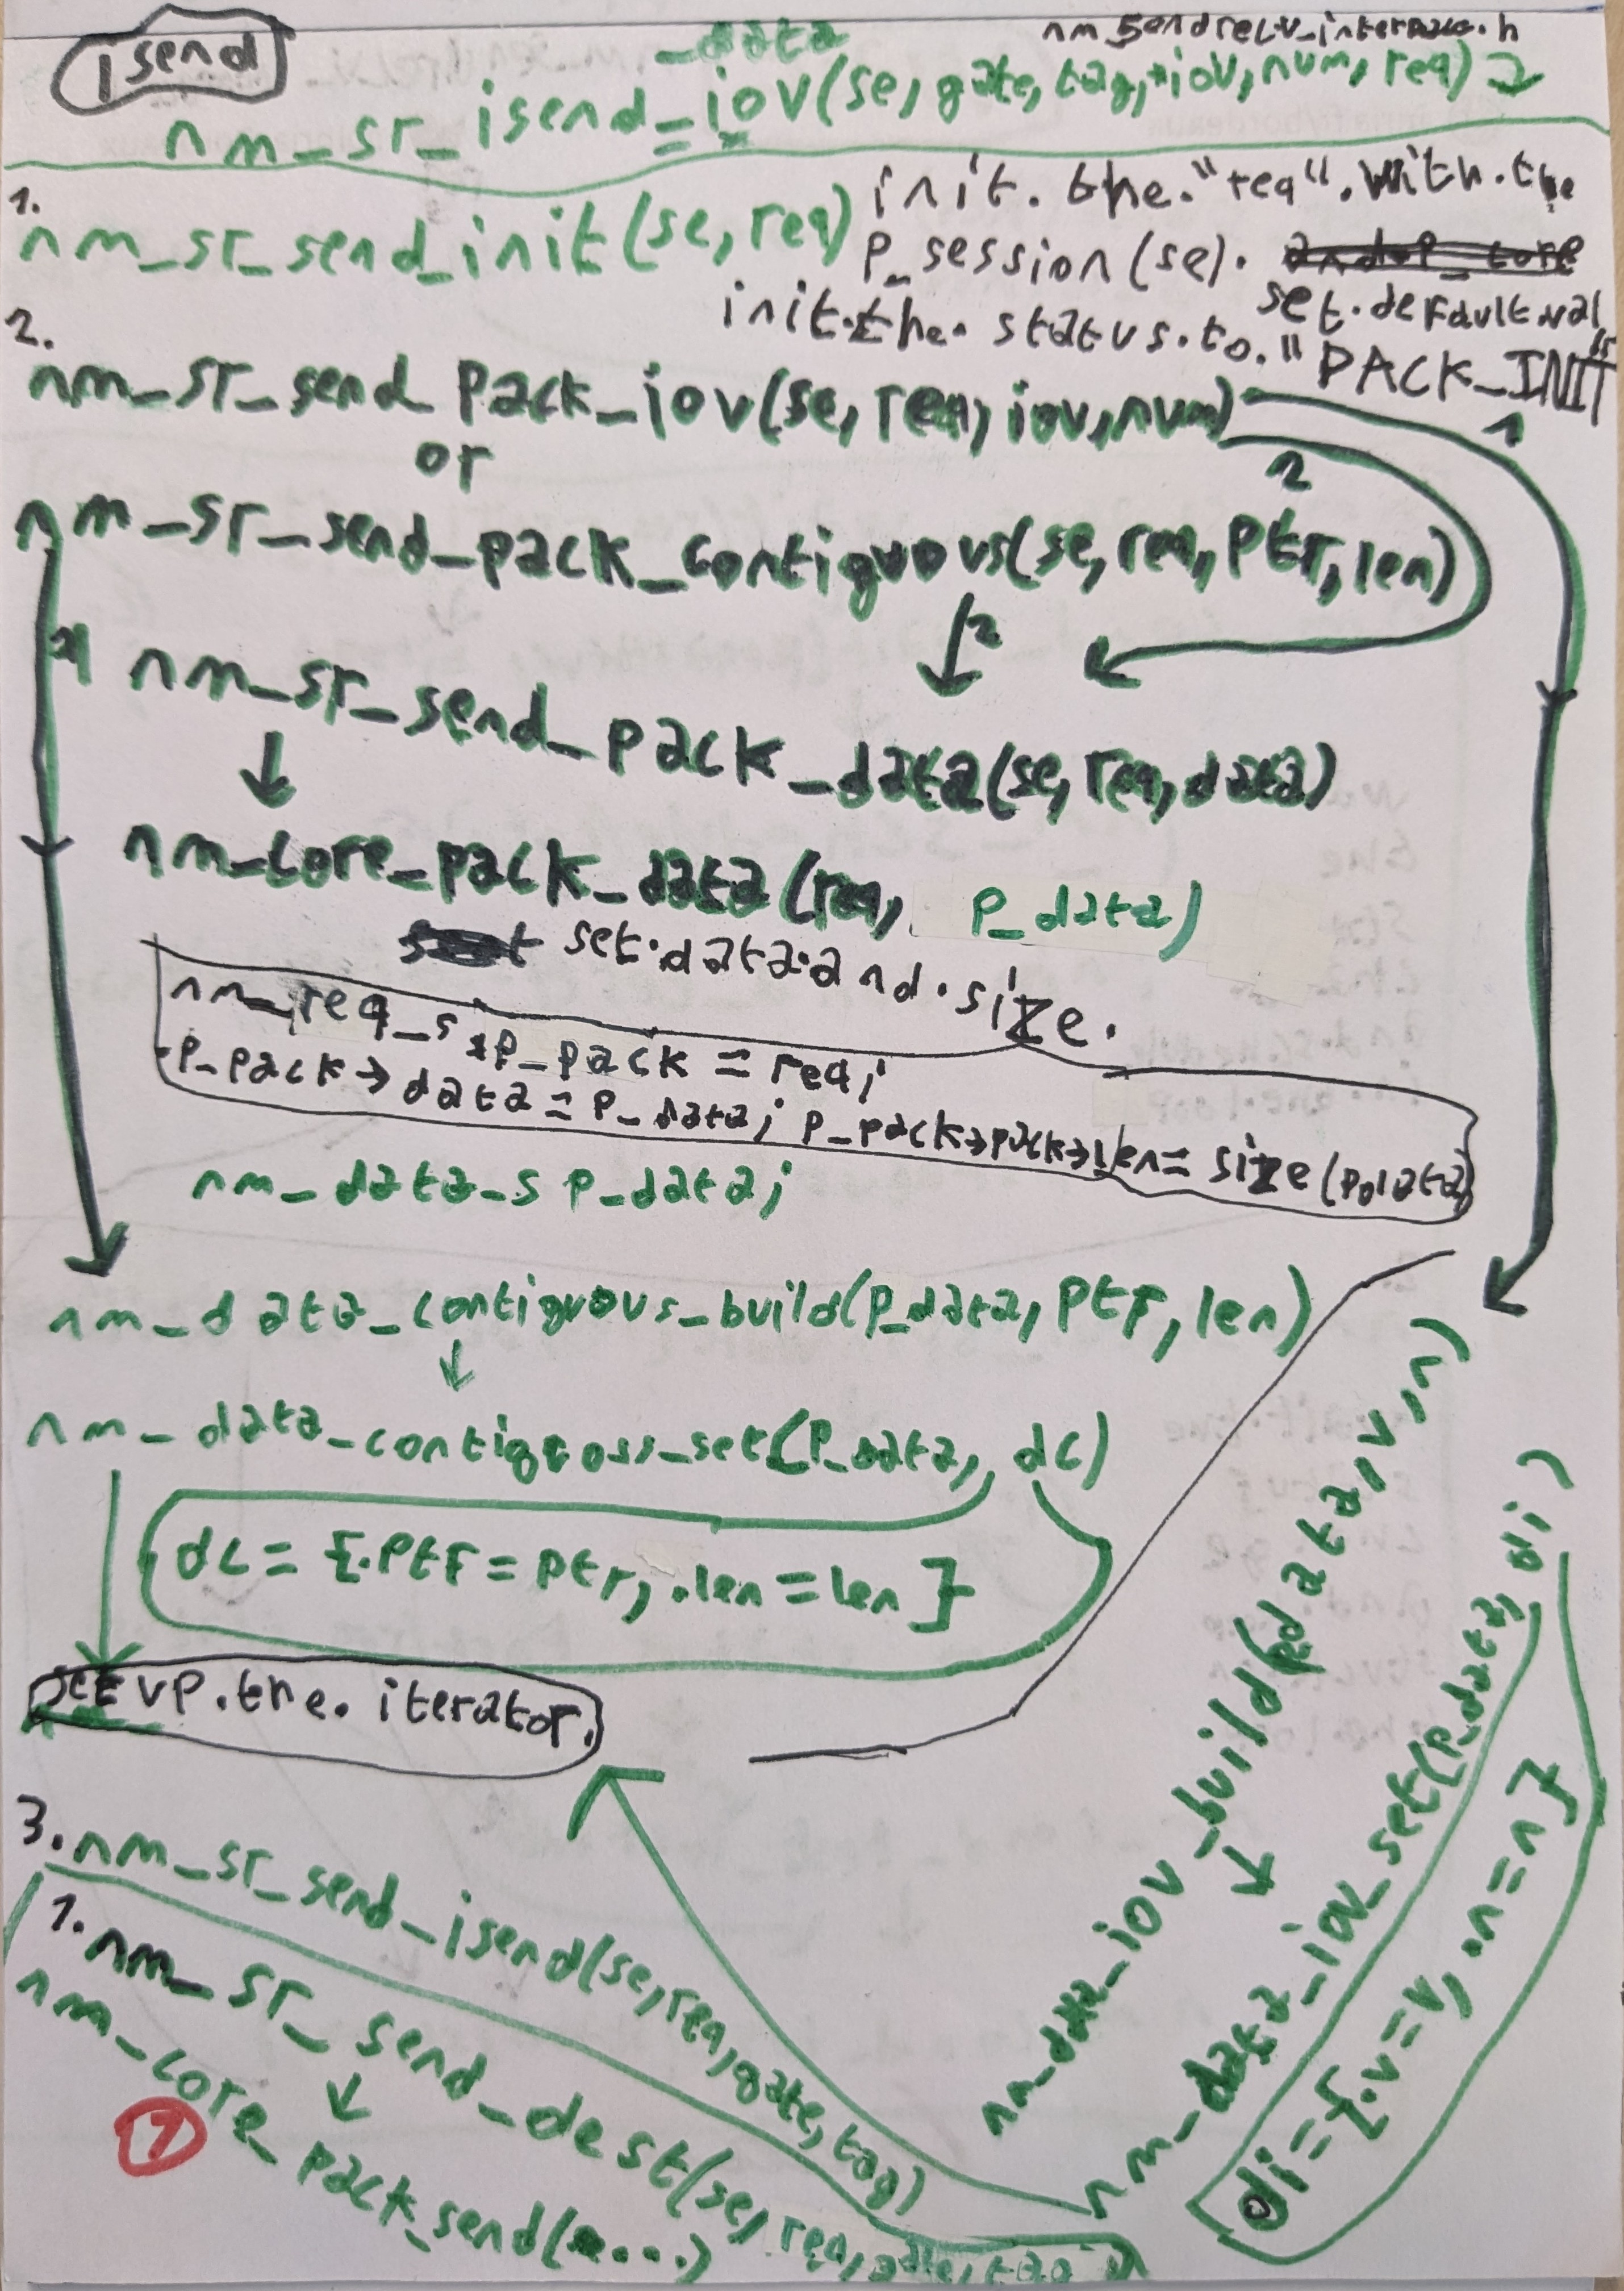 isend
_data
nm_sendrecv_interface.h
nm_sr_isend_iov(se, gate, tag, *iov, num, req)
1.
nm_sr_send_init(se, req)
init. the. "req". with. the
p_session(se).
set. default val
init. the. status. to. "PACK_INIT"
2.
nm_sr_send_pack_iov(se, req, iov, num)
1
or
2
nm_sr_send_pack_contiguous(se, req, ptr, len)
2
1
nm_sr_send_pack_data(se, req, data)
nm_core_pack_data(req, p_data)
set. data. and. size.
nm_req_s *p_pack = req;
p_pack→data = p_data; p_pack→pack→len = size(p_data)
nm_data_s p_data;
nm_data_contiguous_build(p_data, ptr, len)
nm_data_contiguous_set(p_data, dc)
dc = {.ptr = ptr, .len = len}
set up. the. iterator.
nm_data_iov_build(pdata, v, n)
nm_data_iov_set(p_data, di)
di = {.v = v, .n = n}
3. nm_sr_send_isend(se, req, gate, tag)
1. nm_sr_send_dest(se, req, gate, tag
nm_core_pack_send(....)
1